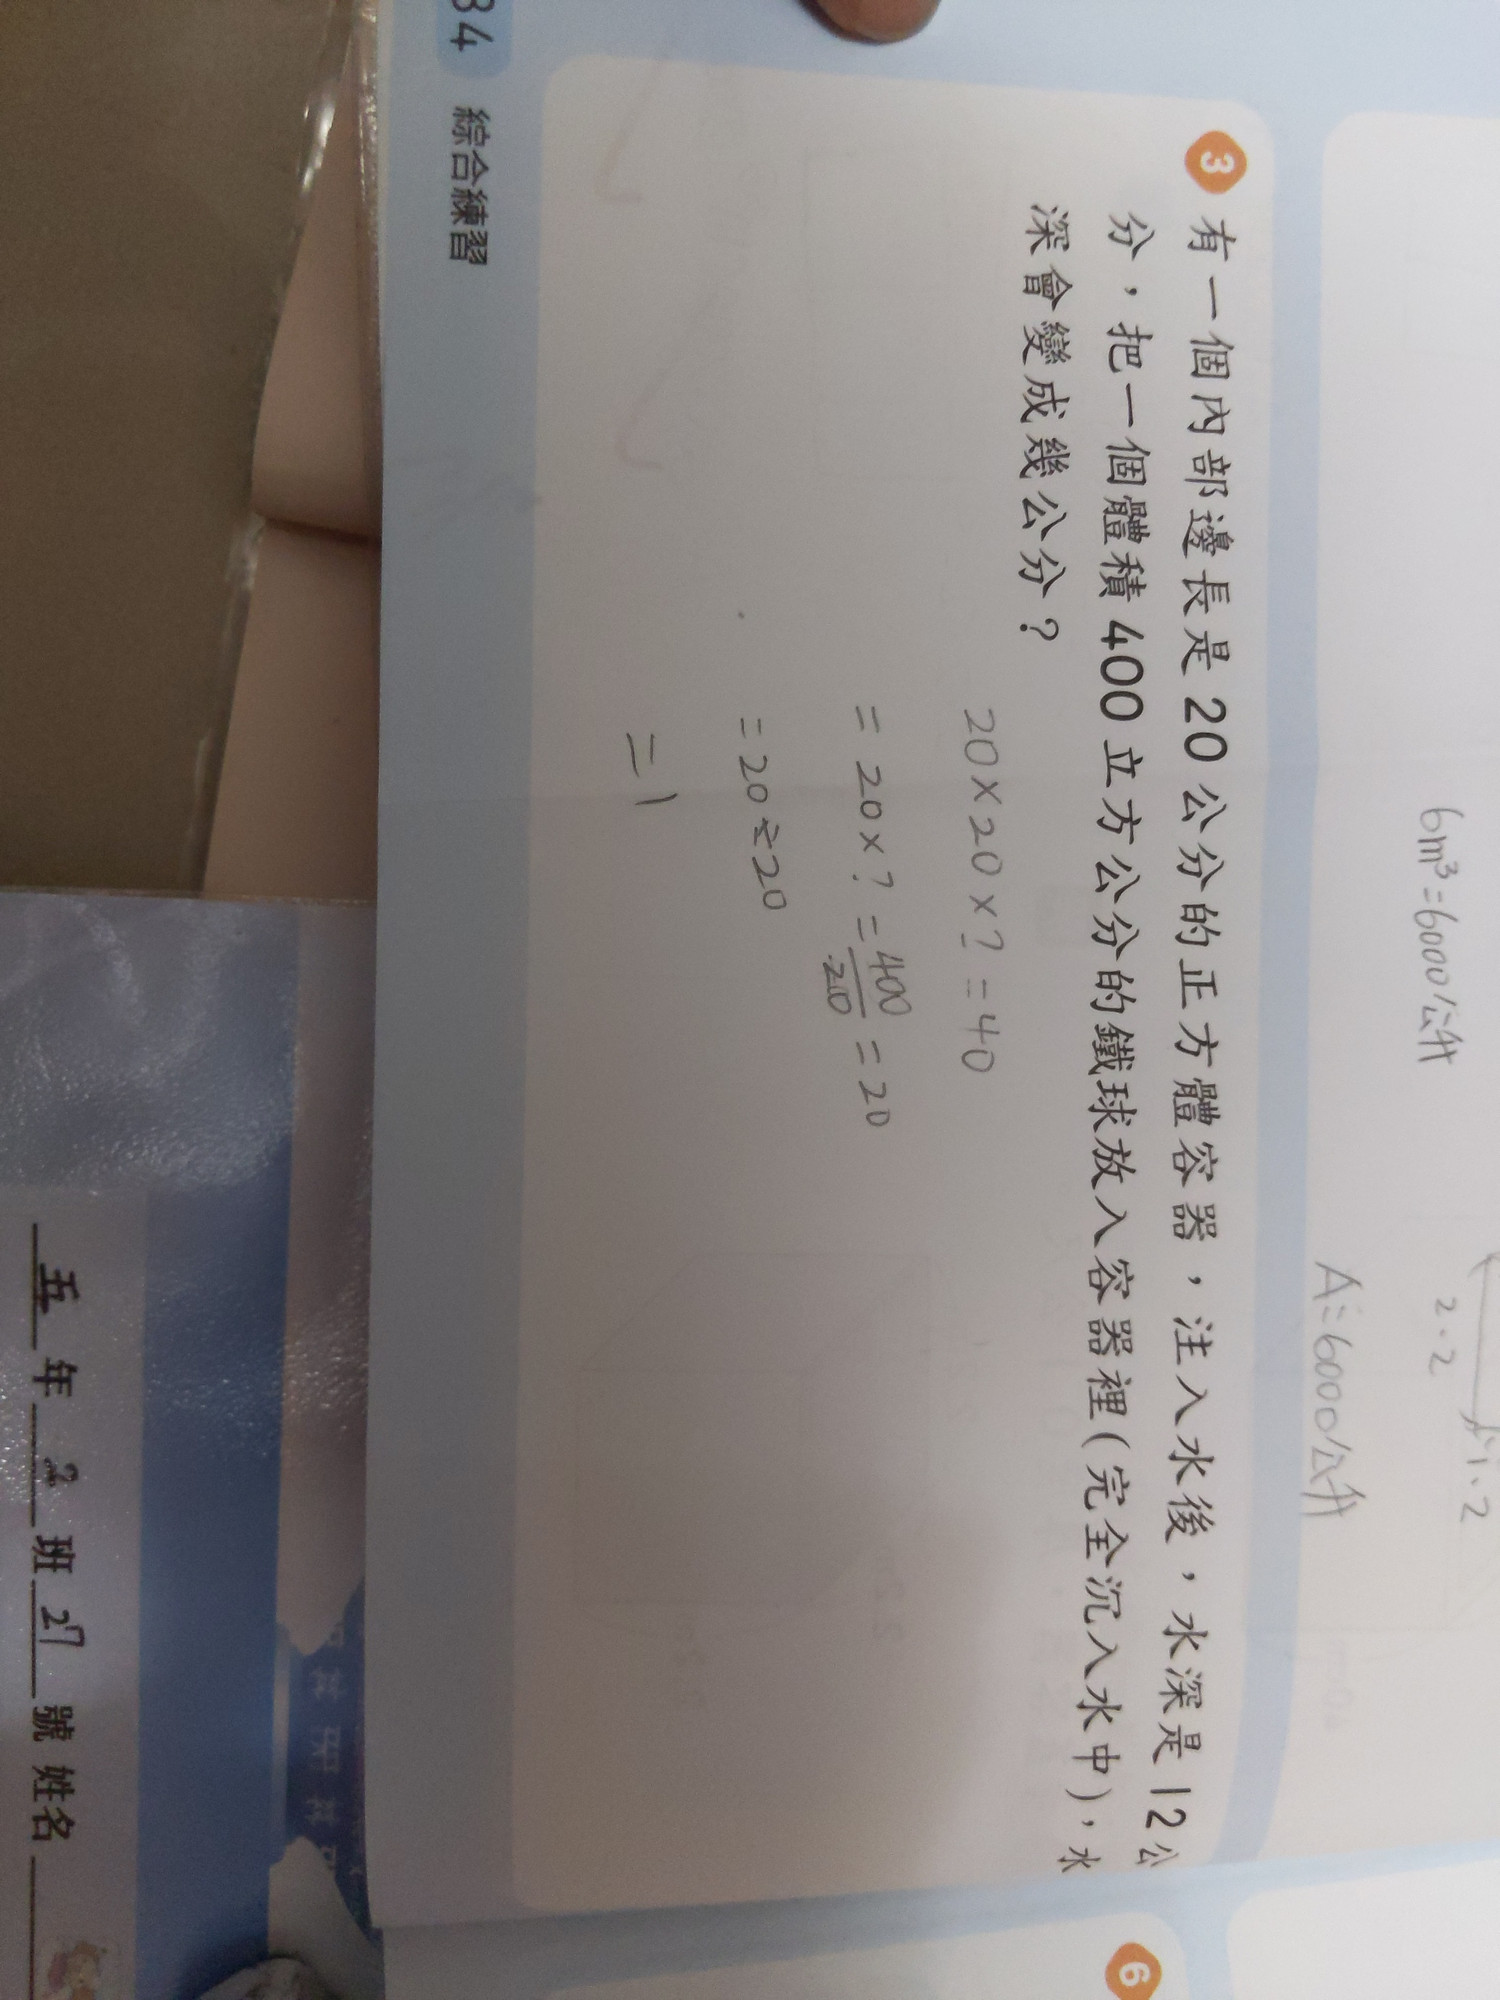 6m³=6000公升
2.2
1.2
A:6000公升
3 有一個內部邊長是20公分的正方體容器，注入水後，水深是12公
分，把一個體積400立方公分的鐵球放入容器裡(完全沉入水中)，水
深會變成幾公分？
20×20×?=40
=20×?=400/20=20
=20÷20
=1
34 綜合練習
6
五年2班27號 姓名